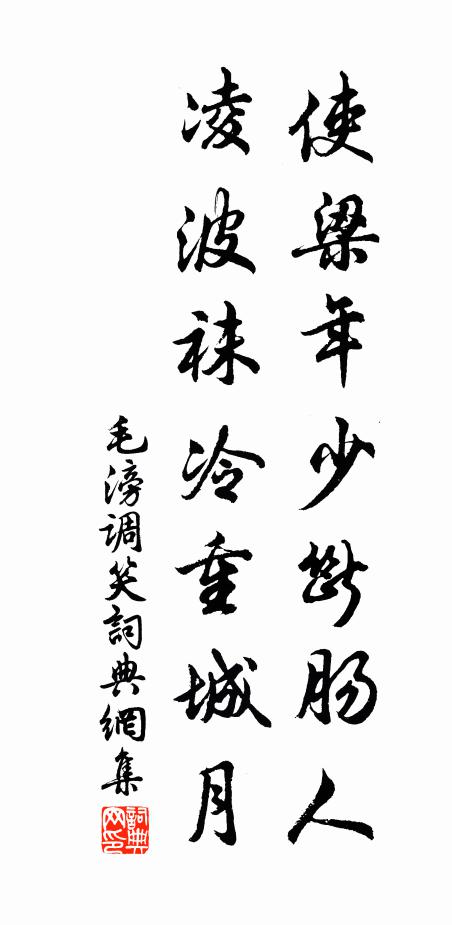 使梁年少斷肠人
凌波袜冷重城月
毛滂調笑詞典網集
詞典网印